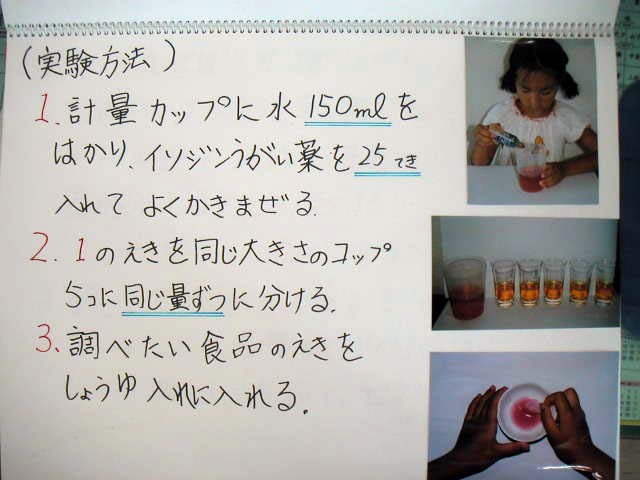 （実験方法）
1. 計量カップに水 150mlを
はかり、イソジンうがい薬を 25てき
入れて よくかきまぜる.
2. 1のえきを同じ大きさのコップ
5つに同じ量ずつに分ける.
3. 調べたい食品のえきを
しょうゆ入れに入れる.